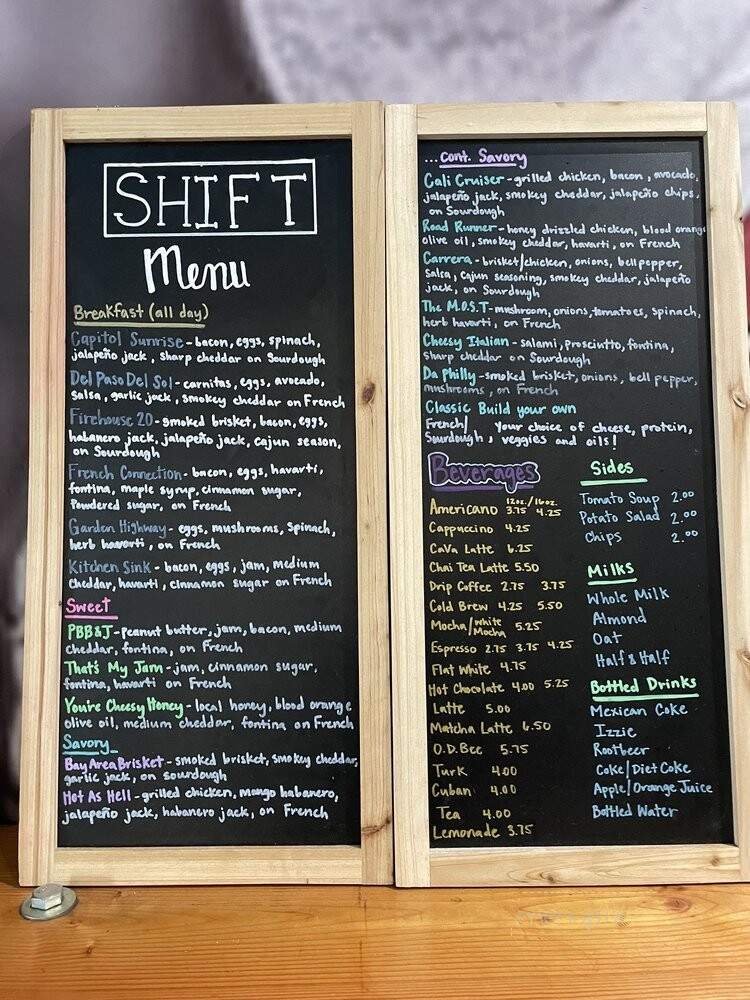 SHIFT
Menu
Breakfast (all day)
Capitol Sunrise - bacon, eggs, spinach,
jalapeño jack, sharp cheddar on Sourdough
Del Paso Del Sol - carnitas, eggs, avocado,
salsa, garlic jack, smokey cheddar on French
Firehouse 20 - smoked brisket, bacon, eggs,
habanero jack, jalapeño jack, cajun season,
on Sourdough
French Connection - bacon, eggs, havarti,
fontina, maple syrup, cinnamon sugar,
Powdered sugar, on French
Garden Highway - eggs, mushrooms, spinach,
herb havarti, on French
Kitchen Sink - bacon, eggs, jam, medium
cheddar, havarti, cinnamon sugar on French
Sweet
PBB&J - peanut butter, jam, bacon, medium
cheddar, fontina, on French
That's My Jam - jam, cinnamon sugar,
fontina, havarti on French
You're Cheesy Honey - local honey, blood orange
olive oil, medium cheddar, fontina on French
Savory
Bay Area Brisket - smoked brisket, smokey cheddar,
garlic jack, on sourdough
Hot As Hell - grilled chicken, mango habanero,
jalapeño jack, habanero jack, on French
...cont. Savory
Cali Cruiser - grilled chicken, bacon, avocado,
jalapeño jack, smokey cheddar, jalapeño chips,
on Sourdough
Road Runner - honey drizzled chicken, blood orange
olive oil, smokey cheddar, havarti, on French
Carrera - brisket/chicken, onions, bell pepper,
salsa, cajun seasoning, smokey cheddar, jalapeño
jack, on Sourdough
The M.O.S.T - mushroom, onions, tomatoes, spinach,
herb havarti, on French
Cheesy Italian - salami, prosciutto, fontina,
sharp cheddar on Sourdough
Da Philly - smoked brisket, onions, bell pepper,
mushrooms, on French
Classic Build your own
French/ your choice of cheese, protein,
Sourdough, veggies and oils!
Beverages
12oz./16oz.
Americano 3.75 4.25
Cappuccino 4.25
CaVa Latte 6.25
Chai Tea Latte 5.50
Drip Coffee 2.75 3.75
Cold Brew 4.25 5.50
Mocha/White Mocha 5.25
Espresso 2.75 3.75 4.25
Flat White 4.75
Hot Chocolate 4.00 5.25
Latte 5.00
Matcha Latte 6.50
O.D.Bee 5.75
Turk 4.00
Cuban 4.00
Tea 4.00
Lemonade 3.75
Sides
Tomato Soup 2.00
Potato Salad 2.00
Chips 2.00
Milks
Whole Milk
Almond
Oat
Half & Half
Bottled Drinks
Mexican Coke
Izzie
Rootbeer
Coke/Diet Coke
Apple/Orange Juice
Bottled Water